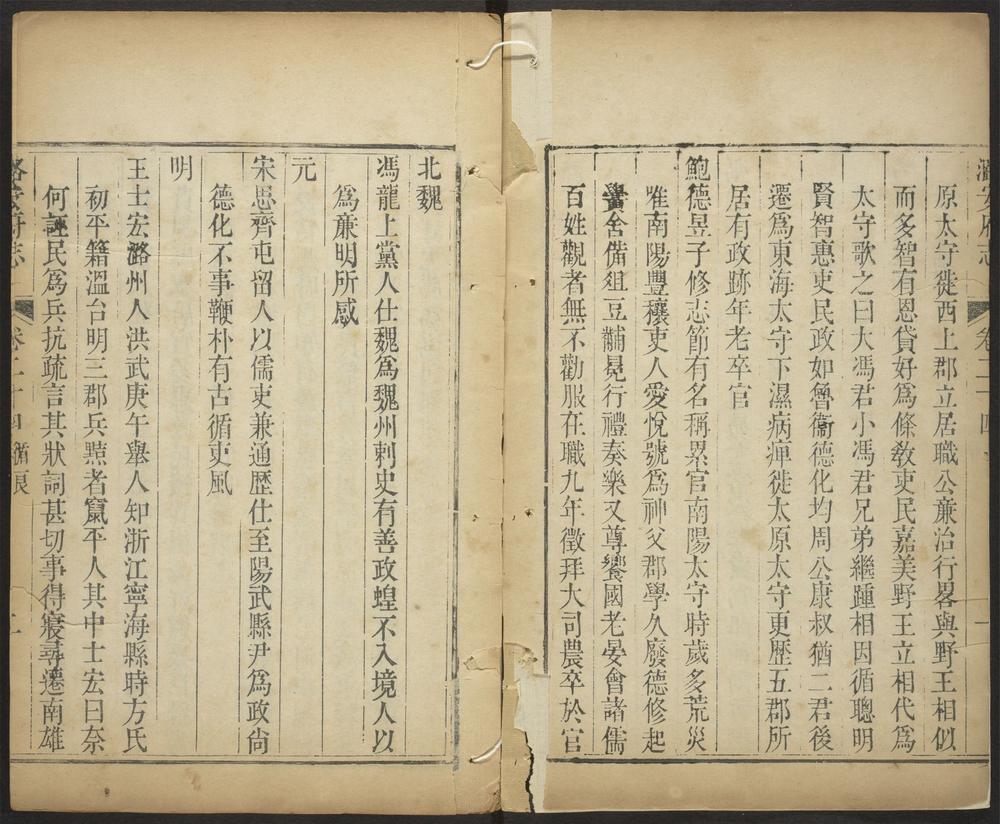 潞安府志 卷二十四 一
原太守徙西上郡立居職公亷治行畧與野王相似
而多智有恩貸好爲條敎吏民嘉美野王立相代爲
太守歌之曰大馮君小馮君兄弟繼踵相因循聰明
賢智惠吏民政如魯衞德化均周公康叔猶二君後
遷爲東海太守下濕病痺徙太原太守更歷五郡所
居有政跡年老卒官
鮑德昱子修志節有名稱累官南陽太守時歲多荒災
唯南陽豐穰吏人愛悅號爲神父郡學久廢德修起
黌舍備俎豆黼冕行禮奏樂又尊饗國老晏會諸儒
百姓觀者無不勸服在職九年徵拜大司農卒於官
北魏
馮龍上黨人仕魏爲魏州刺史有善政蝗不入境人以
爲亷明所感
元
宋思齊屯留人以儒吏兼通歷仕至陽武縣尹爲政尙
德化不事鞭朴有古循吏風
明
王士宏潞州人洪武庚午舉人知浙江寧海縣時方氏
初平籍溫台明三郡兵黠者竄平人其中士宏曰奈
何誣民爲兵抗疏言其狀詞甚切事得寢尋遷南雄
潞安府志 卷二十四 循良 二